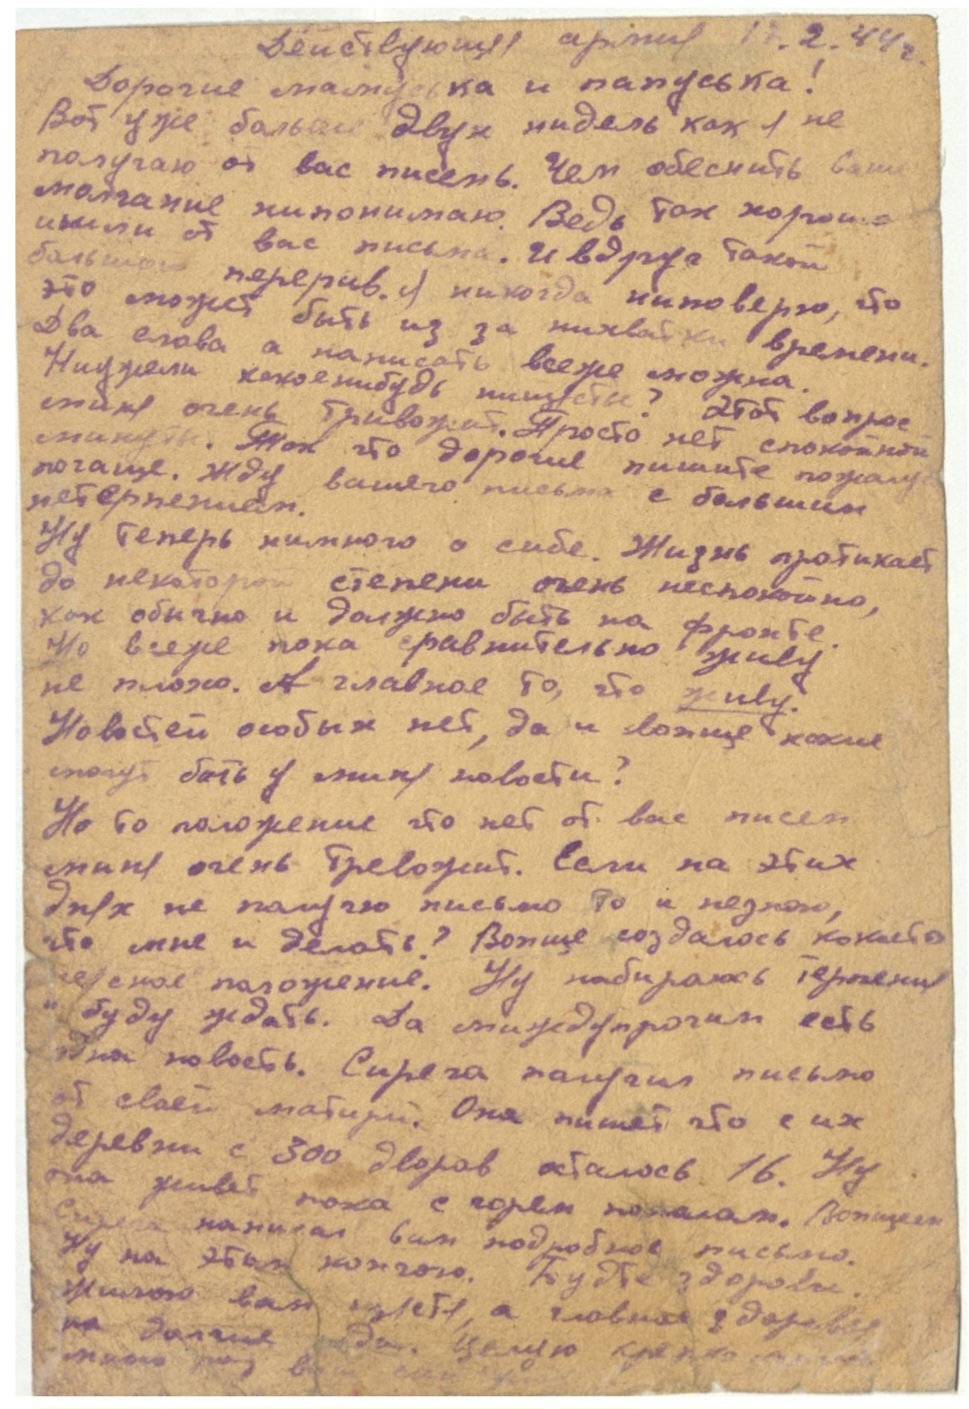 Действующия армия 17.2.44г.
Дорогие мамуська и папуська!
Вот уже больше двух нидель как я не
получаю от вас писень. Чем обеснить ваше
молчание нипонимаю. Ведь так хорошо
ишили от вас письма. И вдруг такой
большой перерив. Я никогда ниповерю, что
это может быть из за нихватки времени.
Два слова а написать всеже можна.
Ниужели какоенибудь нищетье? Этот вопрос
миня очень тривожит. Просто нет спокойной
минуты. Так что дорогие пишите пожалус
почаще. Жду вашего письма с большим
нетерпением.
Ну теперь нимного о сибе. Жизнь протикает
до некоторой степени очень неспокойно,
как обычно и должно быть на фронте.
Но всеже пока сравнительно живу
не плохо. А главное то, что живу.
Новостей особых нет, да и вопще какие
могут бать у миня новости?
Но то положение что нет от вас писем
миня очень тревожит. Если на этих
днях не получю письмо то и незнаю,
что мне и делать? Вопще создалось какоето
положение. Ну набираюсь терпения
и буду ждать. Да миждупрочим есть
одна новость. Сиреча получил письмо
от своей матири. Она пишет что с их
деревни с 300 дворов осталось 16. Ну
она живет пока с горем пополам. Вопщем
Сиреча написал вам подробное письмо.
Ну на этом кончаю. Будте здорови.
Жилаю вам щястя, а главное здоровья
на долгие года. Целую крепко
много раз ваш сын